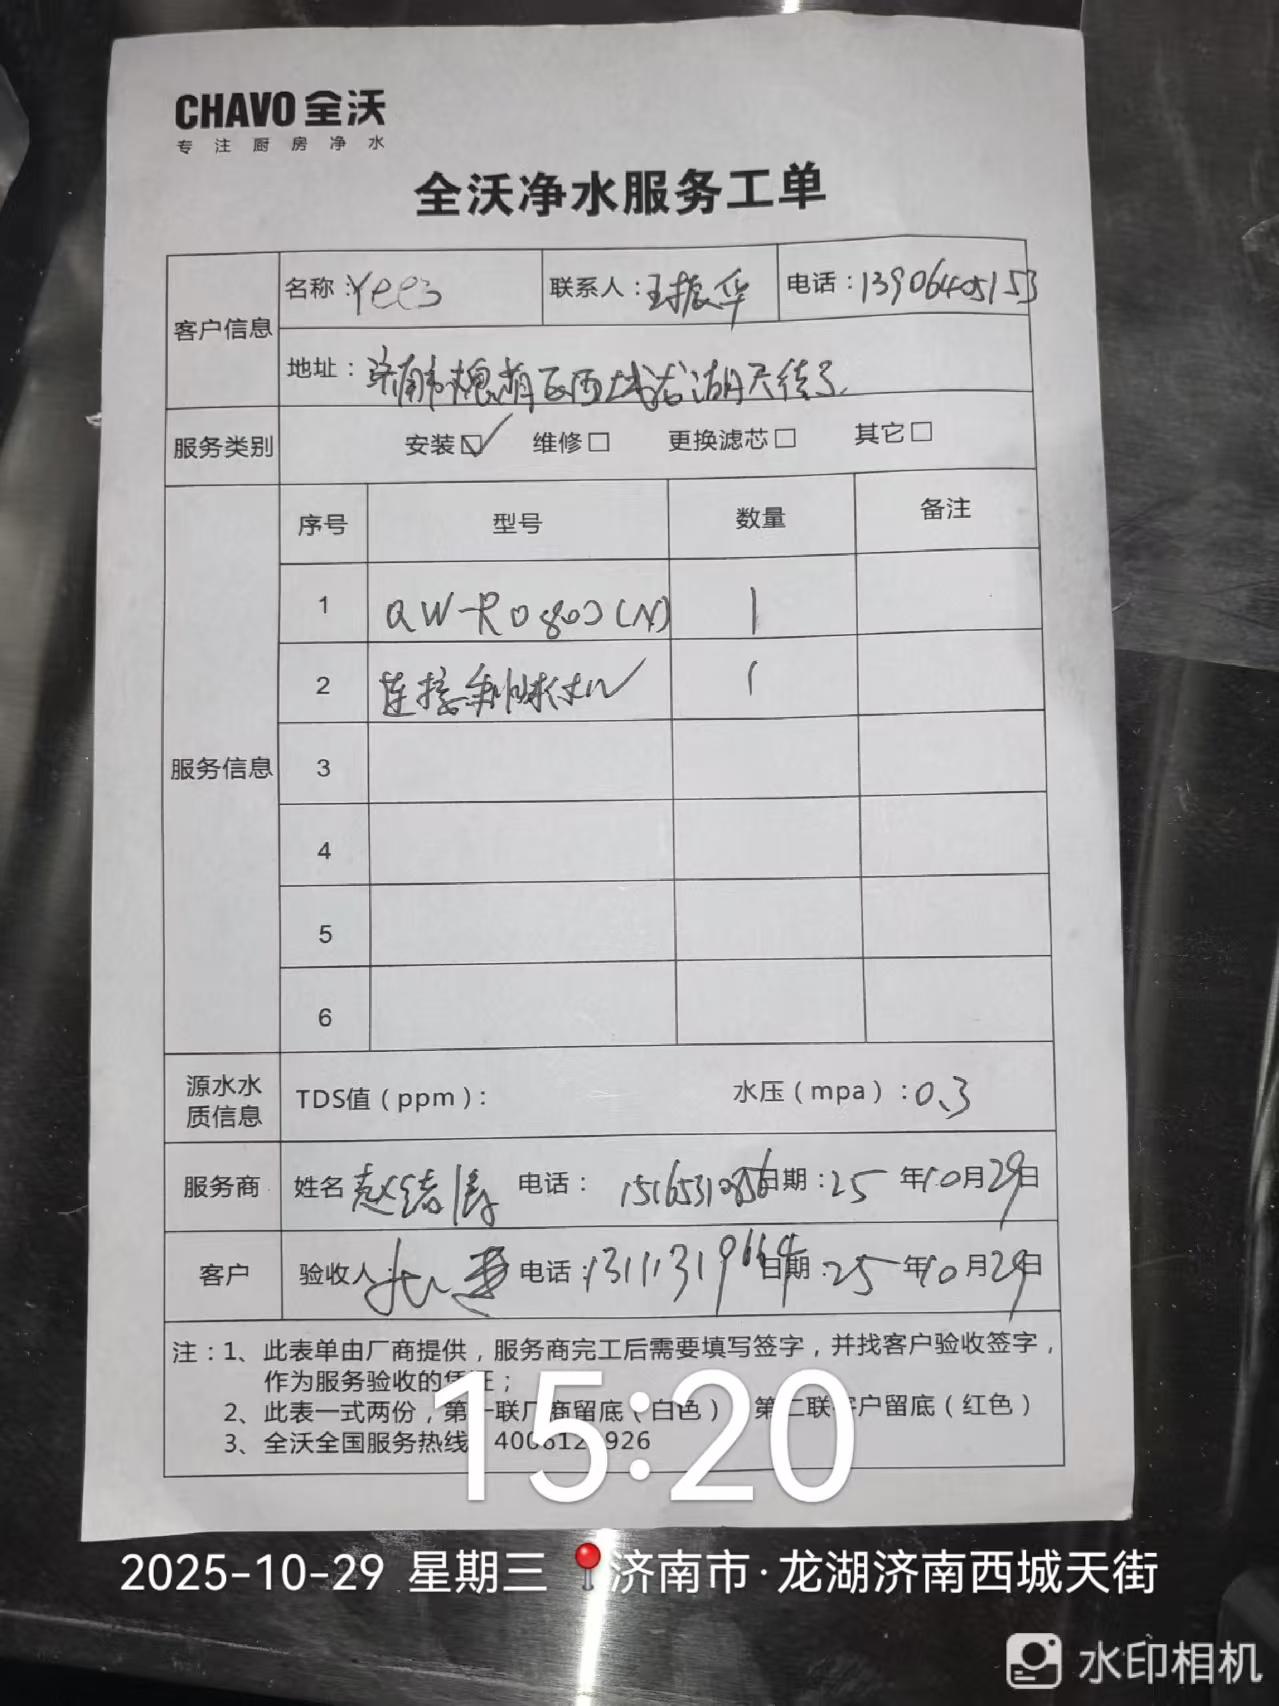 CHAVO 全沃
专注厨房净水
全沃净水服务工单
客户信息 名称: 联系人:王振华 电话:13906405153
地址:济南市槐荫区西城龙湖天街
服务类别 安装☑ 维修□ 更换滤芯□ 其它□
服务信息 序号 型号 数量 备注
1 QW-RO800(N) 1
2 连接 1
3
4
5
6
源水水质信息 TDS值(ppm): 水压(mpa):0.3
服务商 姓名 电话: 日期:25年10月29日
客户 验收人: 电话: 日期:25年10月29日
注:1、此表单由厂商提供,服务商完工后需要填写签字,并找客户验收签字,
作为服务验收的凭证;
2、此表一式两份,第一联厂商留底(白色) 第二联客户留底(红色)
3、全沃全国服务热线
15:20
2025-10-29 星期三 济南市·龙湖济南西城天街
水印相机